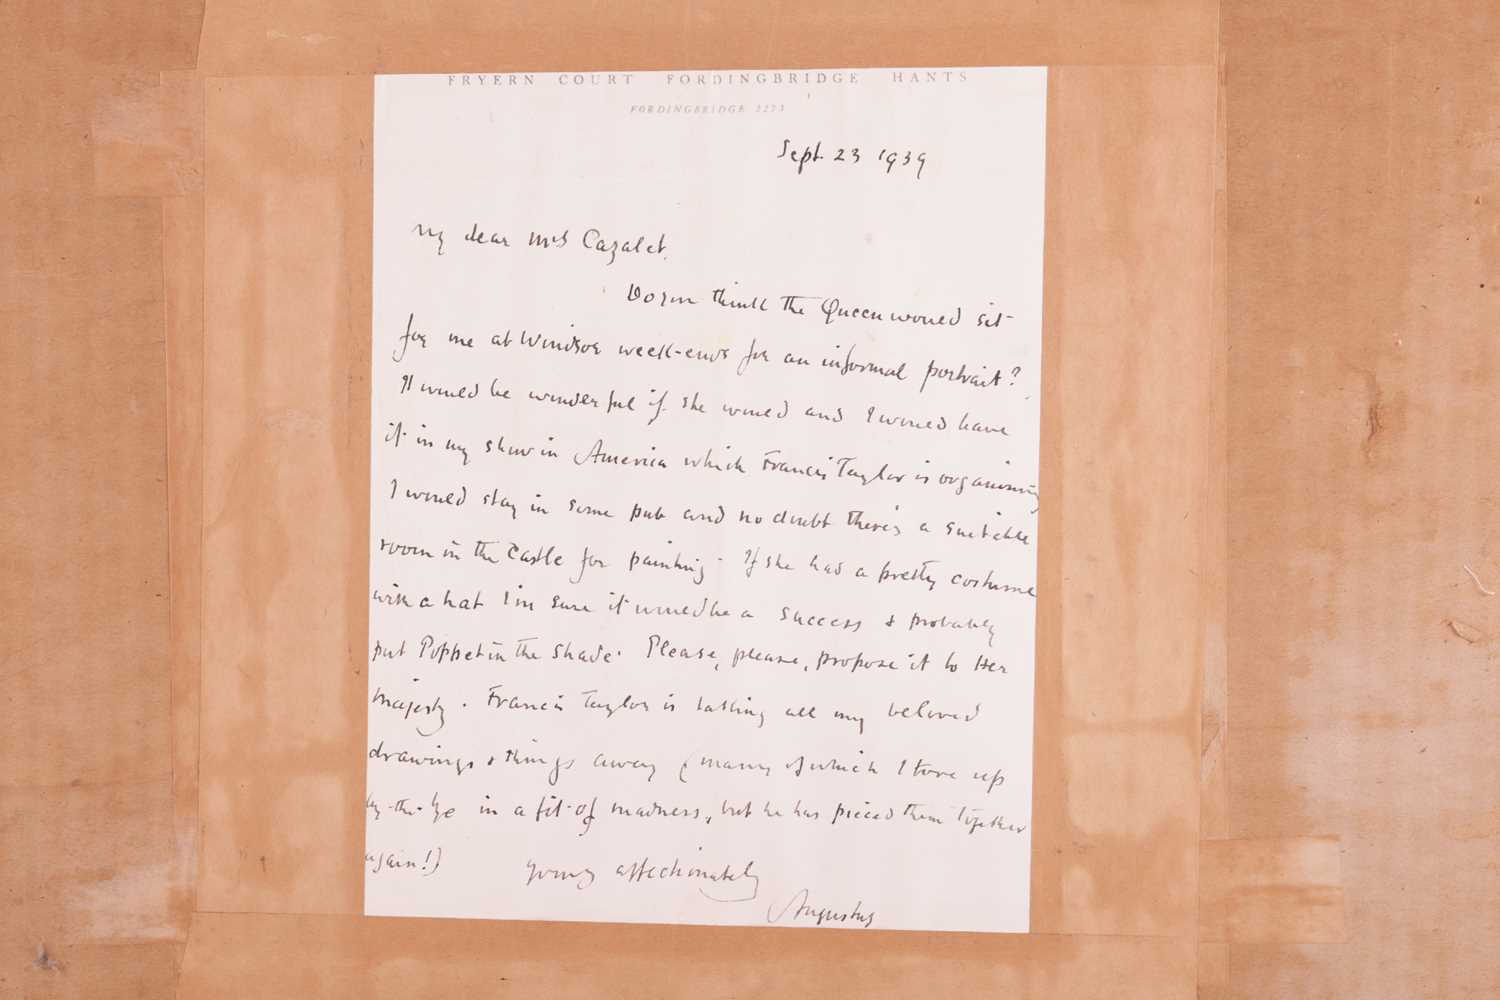 FRYERN COURT FORDINGBRIDGE HANTS
FORDINGBRIDGE 2273
Sept. 23 1939
My dear Mrs Cazalet.
Do you think the Queen would sit
for me at Windsor week-ends for an informal portrait?
It would be wonderful if she would and I would have
it in my show in America which Francis Taylor is organising
I would stay in some pub and no doubt there's a suitable
room in the Castle for painting. If she had a pretty costume
with a hat I'm sure it would be a success & probably
put Poppet in the shade. Please, please, propose it to Her
Majesty. Francis Taylor is taking all my beloved
drawings & things away (many of which I tore up
by-the-bye in a fit of madness, but he has pieced them together
again!)
yours affectionately
Augustus